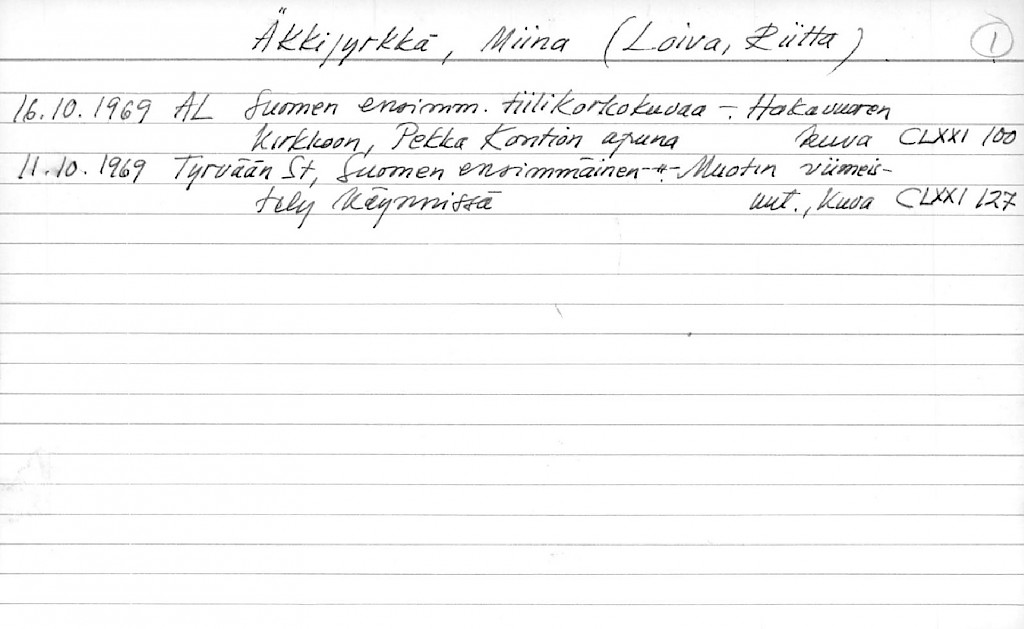 Äkkijyrkkä, Miina (Loiva, Riitta) 1
16.10.1969 AL Suomen ensimm. tiilikorkokuvaa -. Hakavuoren
kirkkoon, Pekka Kontion apuna kuva CLXXI 100
11.10.1969 Tyrvään St, Suomen ensimmäinen -"- Muotin viimeis-
tely käynnissä uut., kuva CLXXI 127